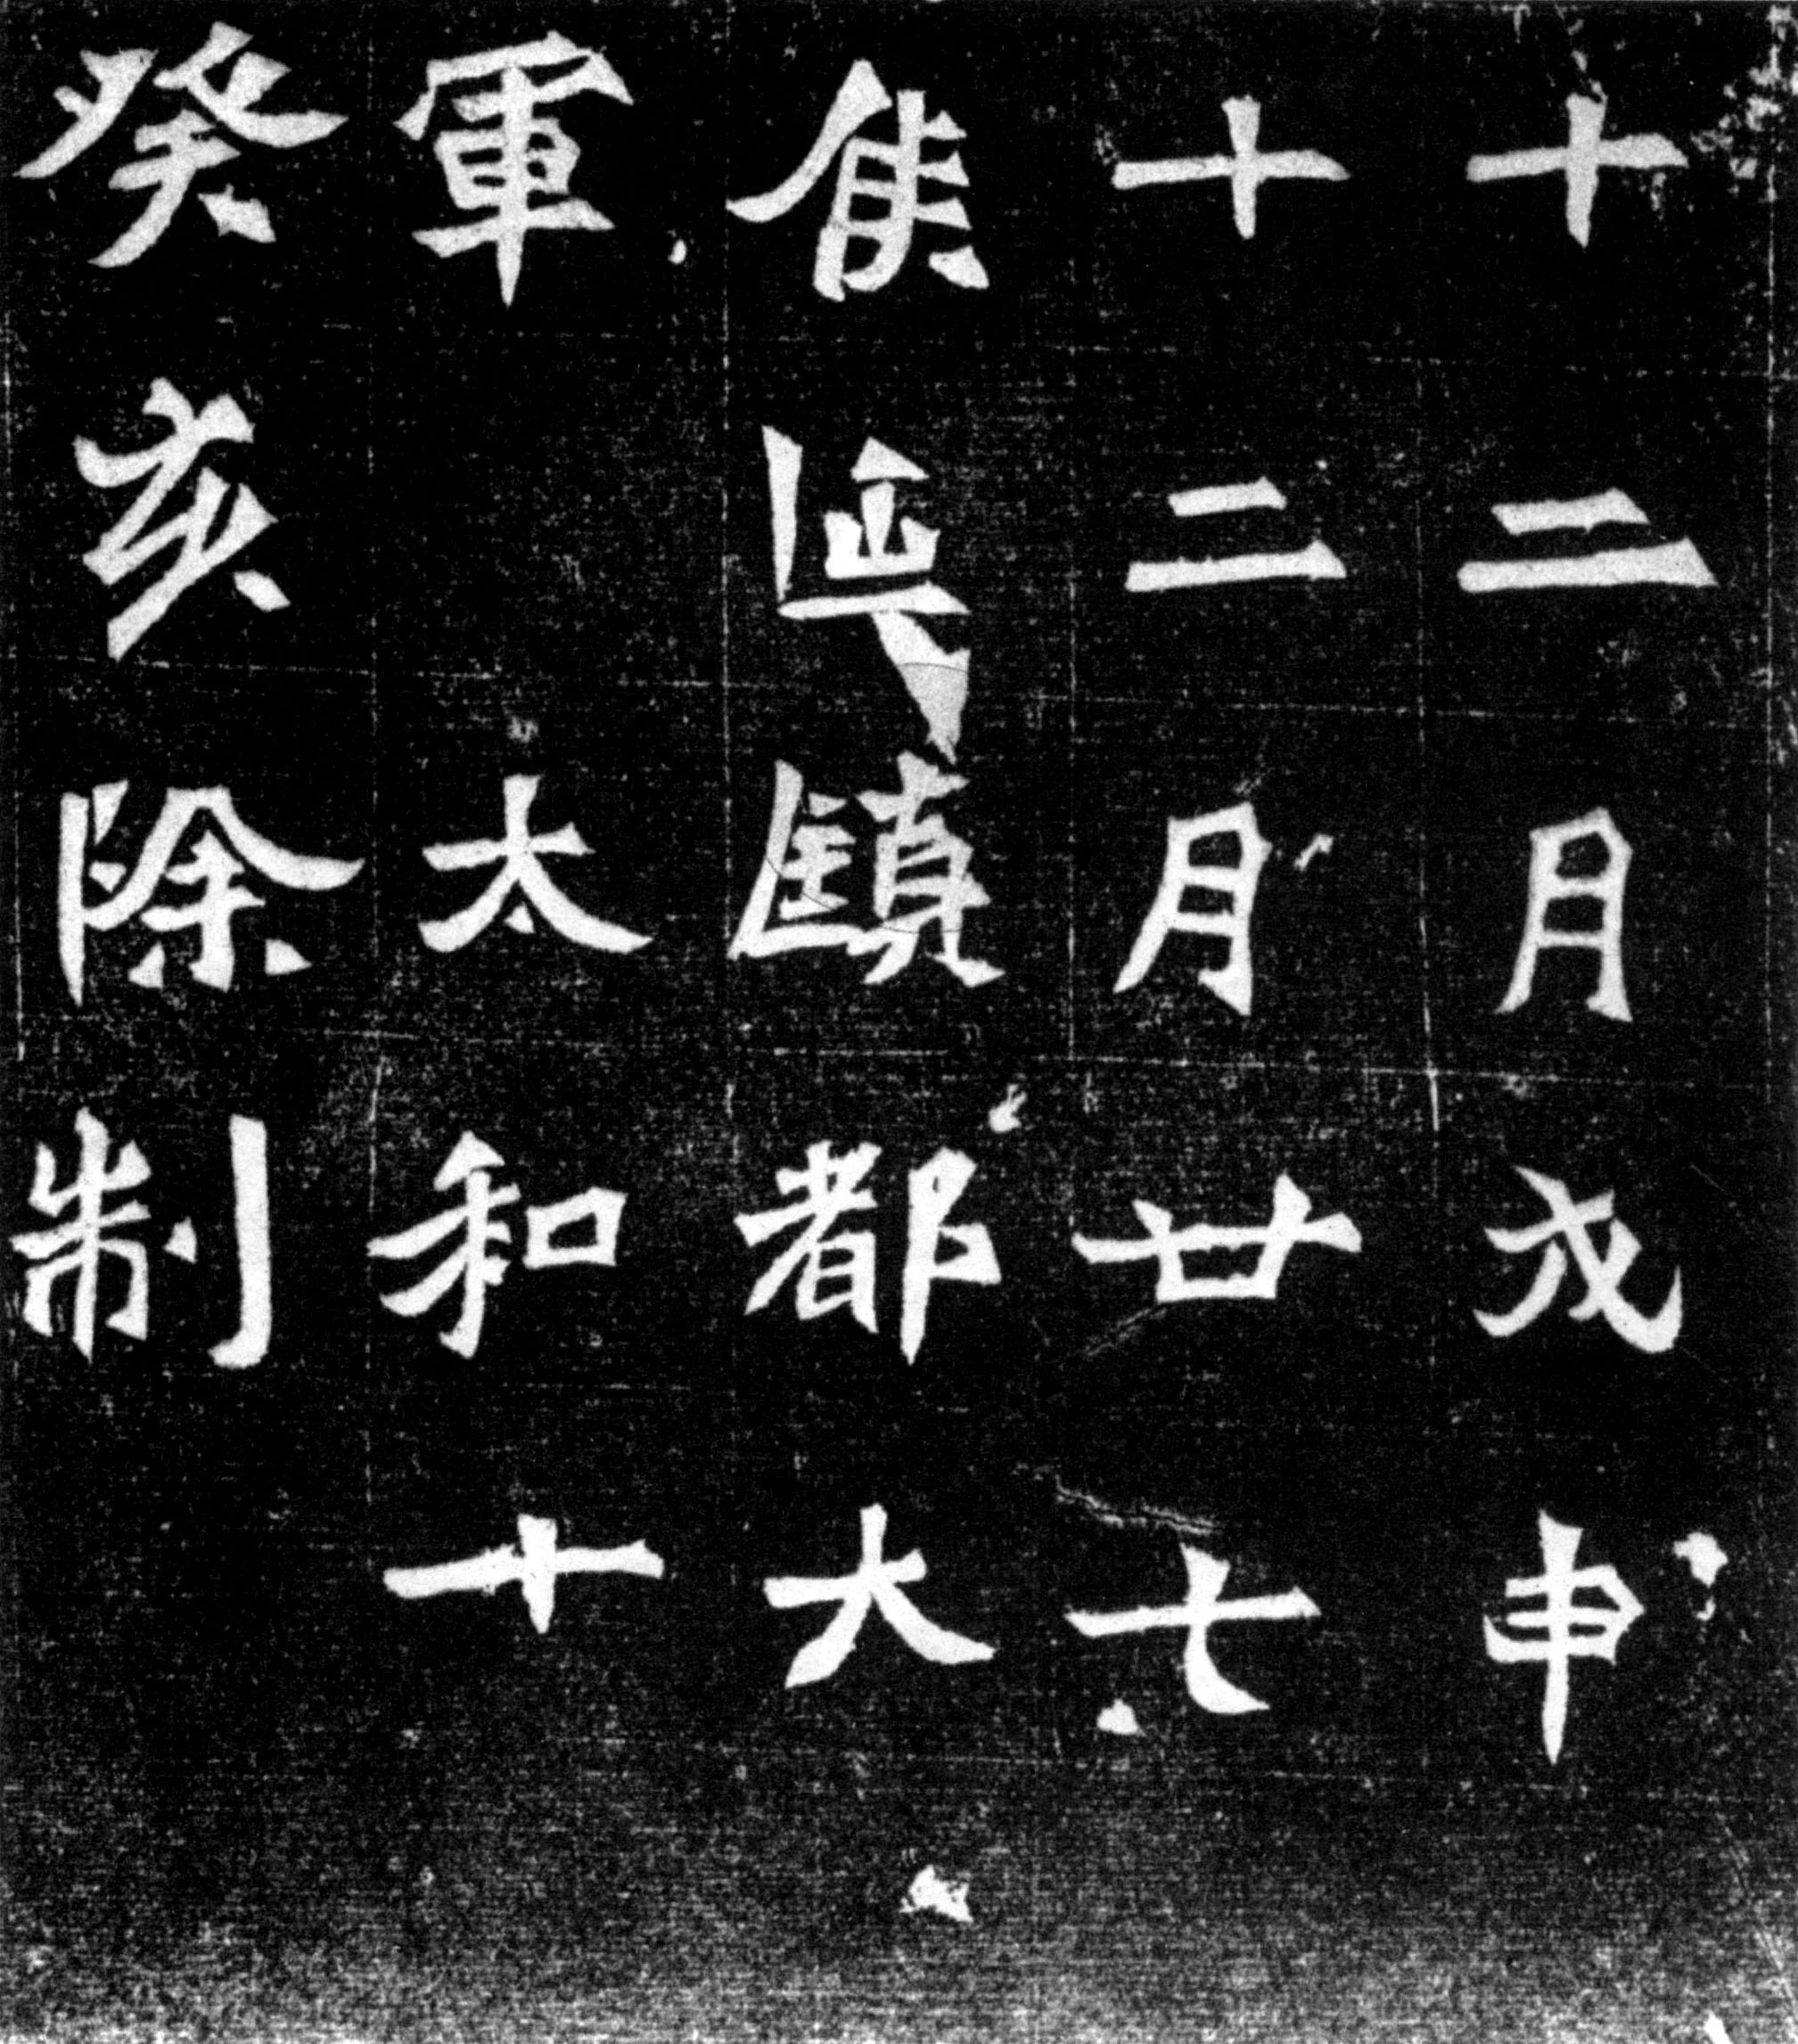 十二月戊申
十二月廿七
鎮都大
軍太和十
癸亥除制